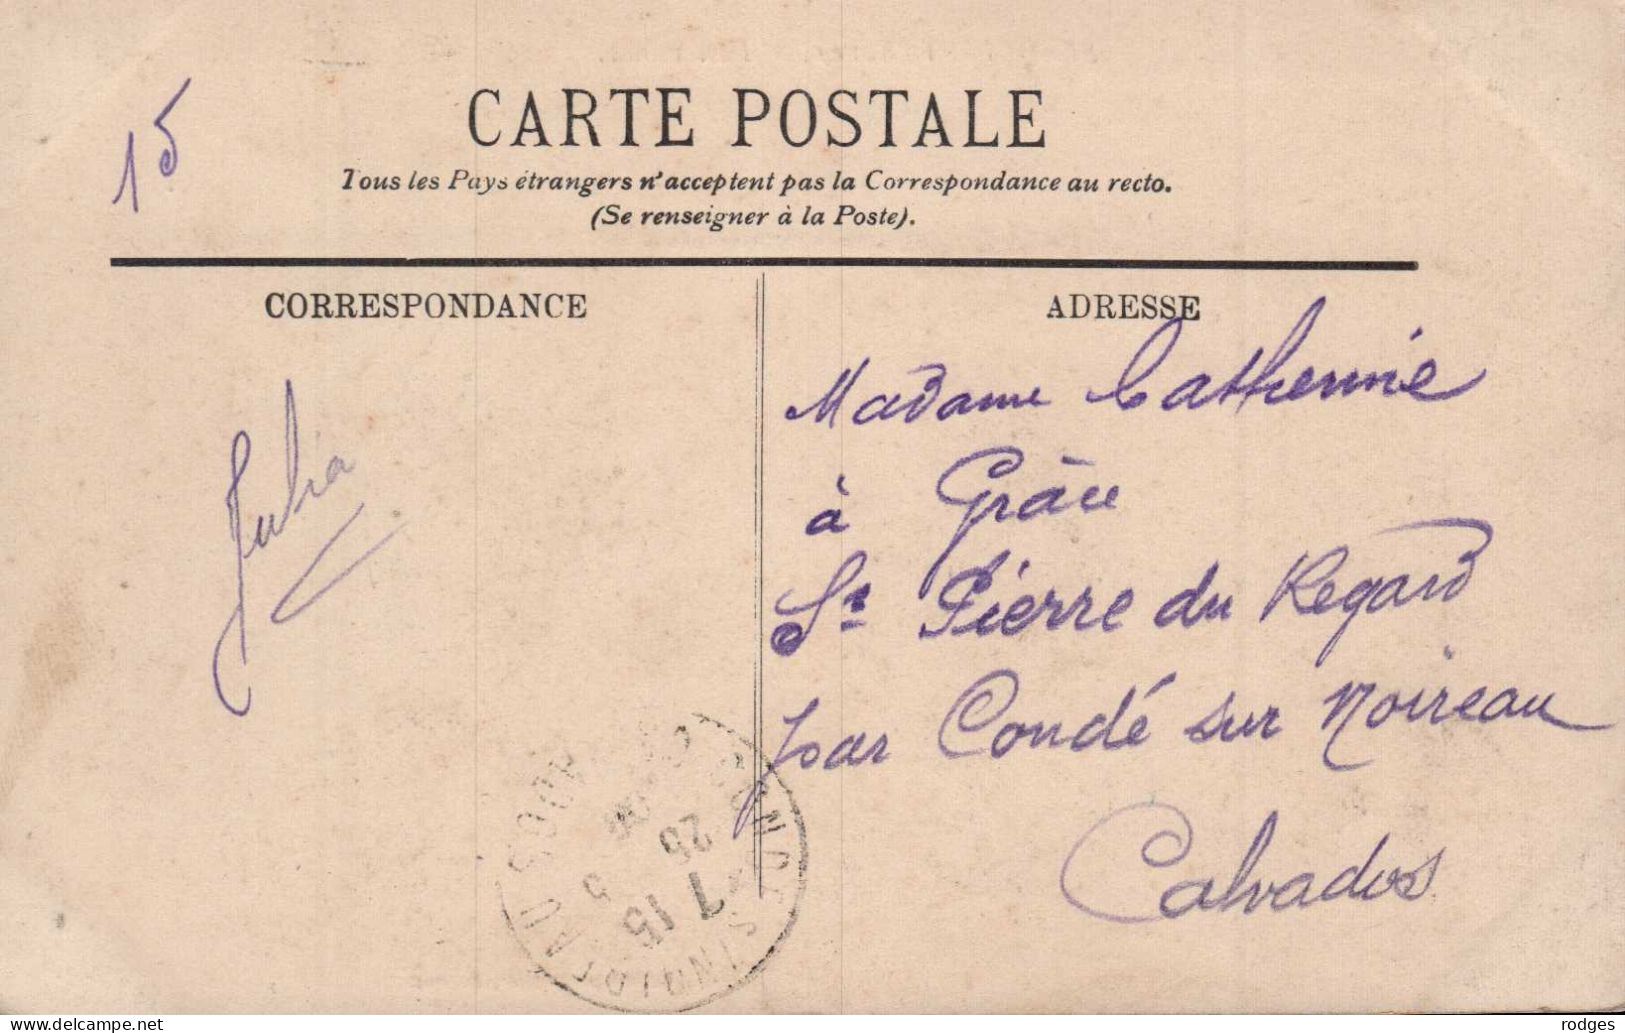 15
CARTE POSTALE
Tous les Pays étrangers n'acceptent pas la Correspondance au recto.
(Se renseigner à la Poste).
CORRESPONDANCE
ADRESSE
Julia
Madame Catherine
à Grâce
St Pierre du Regard
par Condé sur Noireau
Calvados
7 15
25
5
delcampe.net
rodges